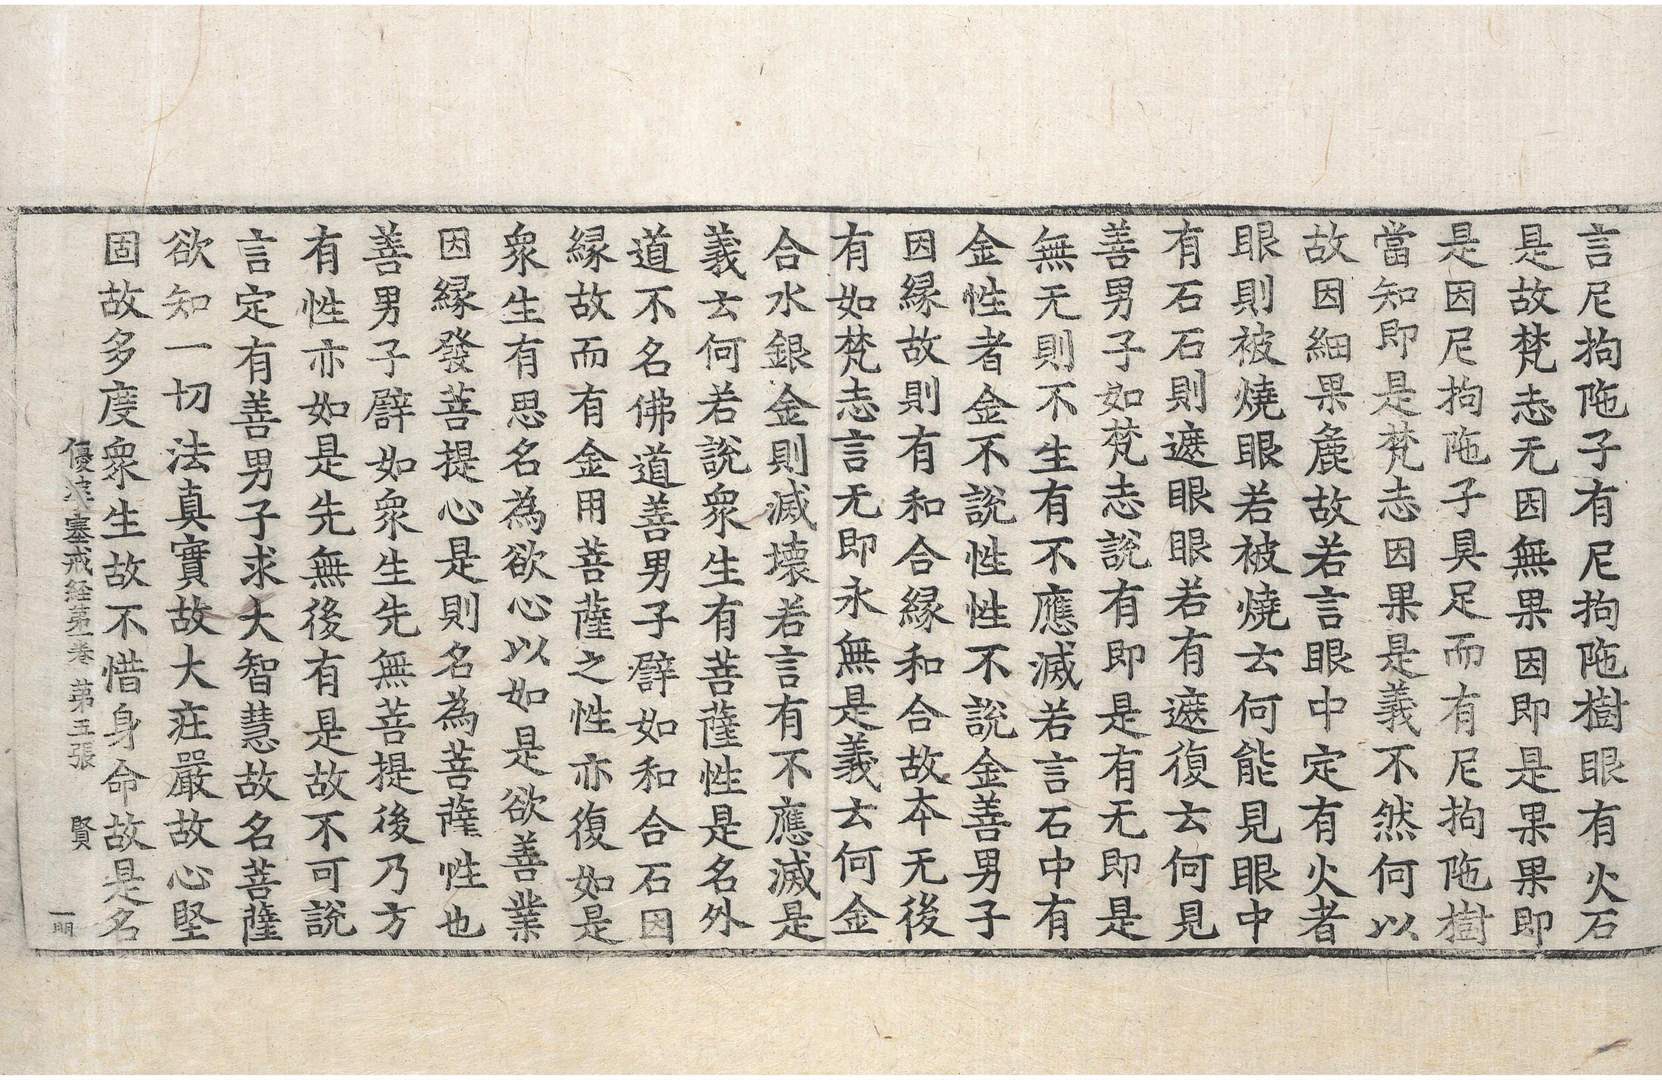 言尼拘陁子有尼拘陁樹眼有火石
是故梵志无因無果因即是果果即
是因尼拘陁子具足而有尼拘陁樹
當知即是梵志因果是義不然何以
故因細果麁故若言眼中定有火者
眼則被燒眼若被燒云何能見眼中
有石石則遮眼眼若有遮復云何見
善男子如梵志說有即是有无即是
無无則不生有不應滅若言石中有
金性者金不說性性不說金善男子
因縁故則有和合縁和合故本无後
有如梵志言无即永無是義云何金
合水銀金則滅壞若言有不應滅是
義云何若說衆生有菩薩性是名外
道不名佛道善男子譬如和合石因
縁故而有金用菩薩之性亦復如是
衆生有思名為欲心以如是欲善業
因縁發菩提心是則名為菩薩性也
善男子譬如衆生先無菩提後乃方
有性亦如是先無後有是故不可說
言定有善男子求大智慧故名菩薩
欲知一切法真實故大莊嚴故心堅
固故多度衆生故不惜身命故是名
優婆塞戒経第一巻 第五張 賢